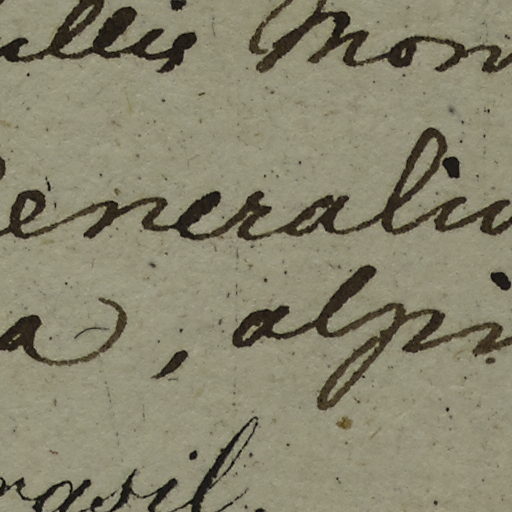 ullis Mon
eneraliu
a, alpin
rasil.